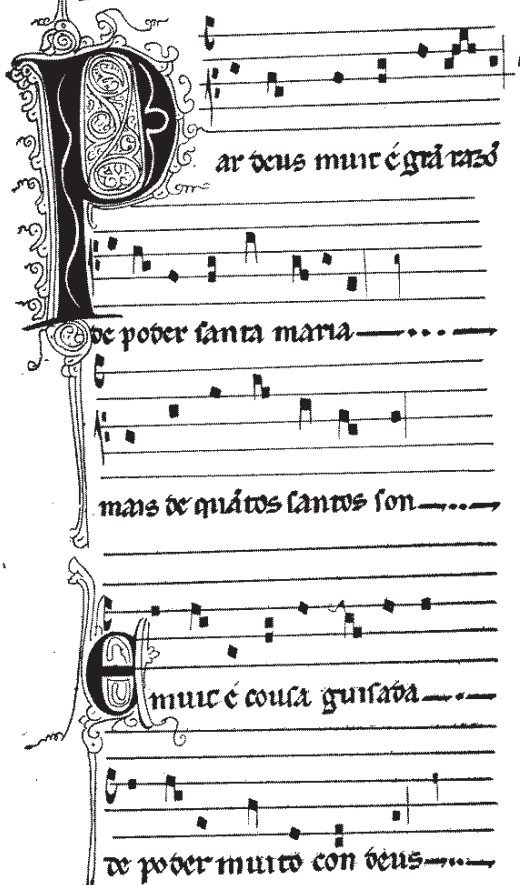 Par deus muit é grã razõ
de poder santa maria
mais de quãtos santos son
E muit é cousa guisada
de poder muito con deus